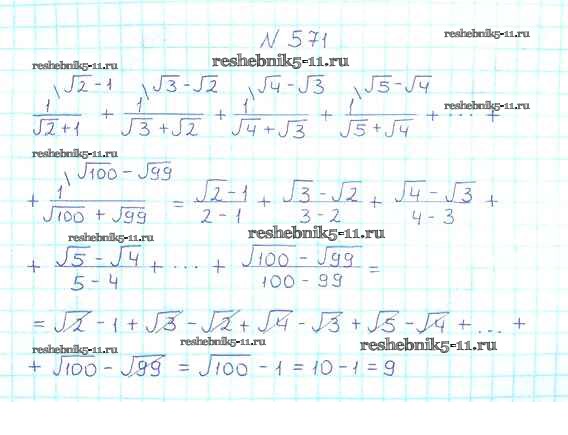 № 571
reshebnik5-11.ru
reshebnik5-11.ru
reshebnik5-11.ru
\√2-1 \√3-√2 \√4-√3 \√5-√4
1/(√2+1) + 1/(√3+√2) + 1/(√4+√3) + 1/(√5+√4) + ... +
reshebnik5-11.ru
reshebnik5-11.ru
\√100-√99
+ 1/(√100+√99) = (√2-1)/(2-1) + (√3-√2)/(3-2) + (√4-√3)/(4-3) +
reshebnik5-11.ru
reshebnik5-11.ru
+ (√5-√4)/(5-4) + ... + (√100-√99)/(100-99) =
= √2 - 1 + √3 - √2 + √4 - √3 + √5 - √4 + ... +
reshebnik5-11.ru
reshebnik5-11.ru
reshebnik5-11.ru
+ √100 - √99 = √100 - 1 = 10 - 1 = 9